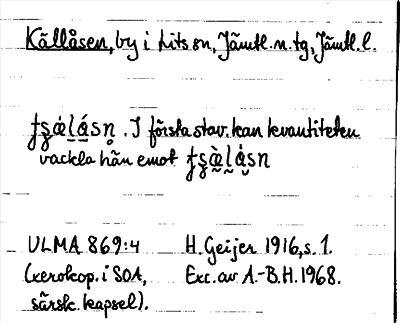 Källåsen, by i Lits sn, Jämtl. n. tg, Jämtl. l.
tʂæ̀lá̱sn̥. I första stav. kan kvantiteten
vackla hän emot tʂæ̀lásn
ULMA 869:4 H. Geijer 1916, s. 1.
(xerokop. i SOA, Exc. av A.-B.H. 1968.
särsk. kapsel).